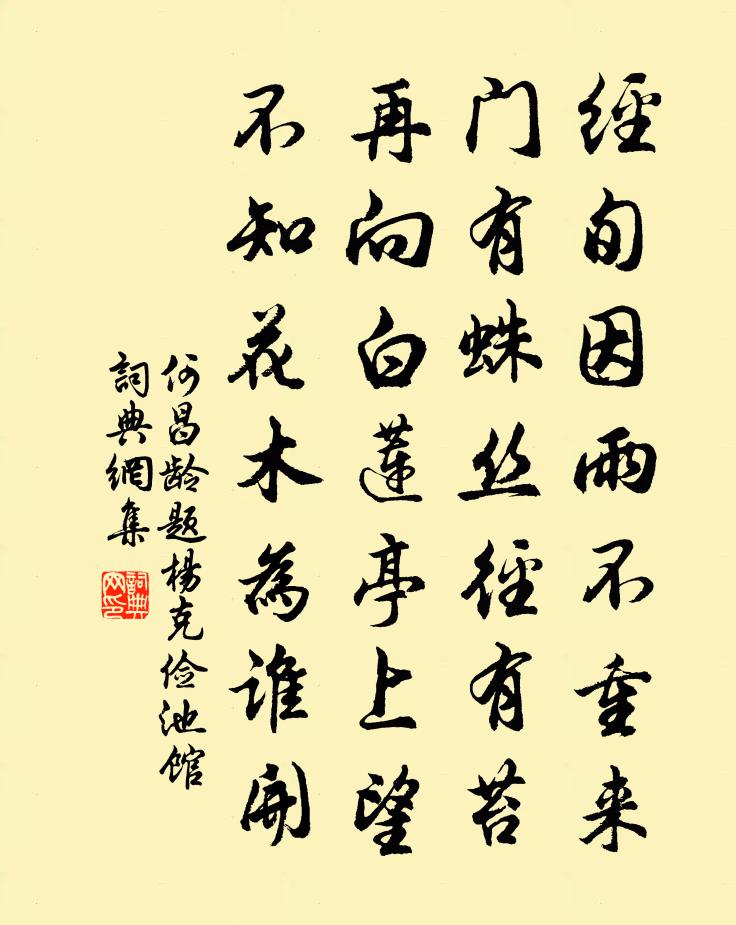 經旬因雨不重来
門有蛛丝徑有苔
再向白蓮亭上望
不知花木為誰開
何昌龄题楊克俭池馆
詞典網集
詞典網印